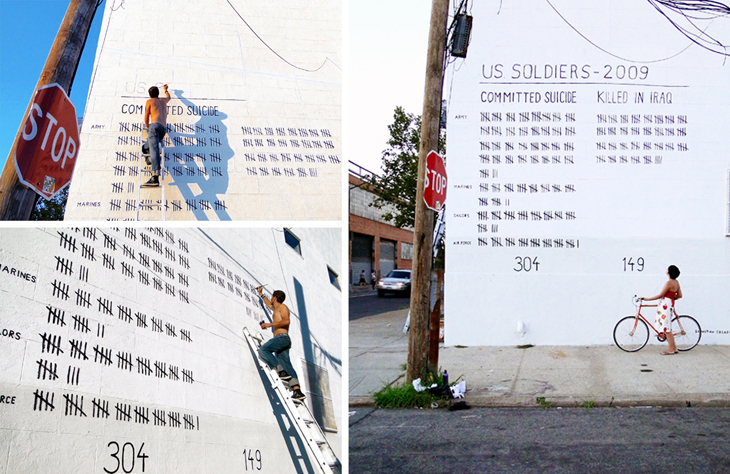 US
COMMITTED SUICIDE
ARMY
STOP
MARINES
MARINES
LORS
RCE
304 149
US SOLDIERS-2009
COMMITTED SUICIDE KILLED IN IRAQ
ARMY
STOP
MARINES
SAILORS
AIR FORCE
304 149